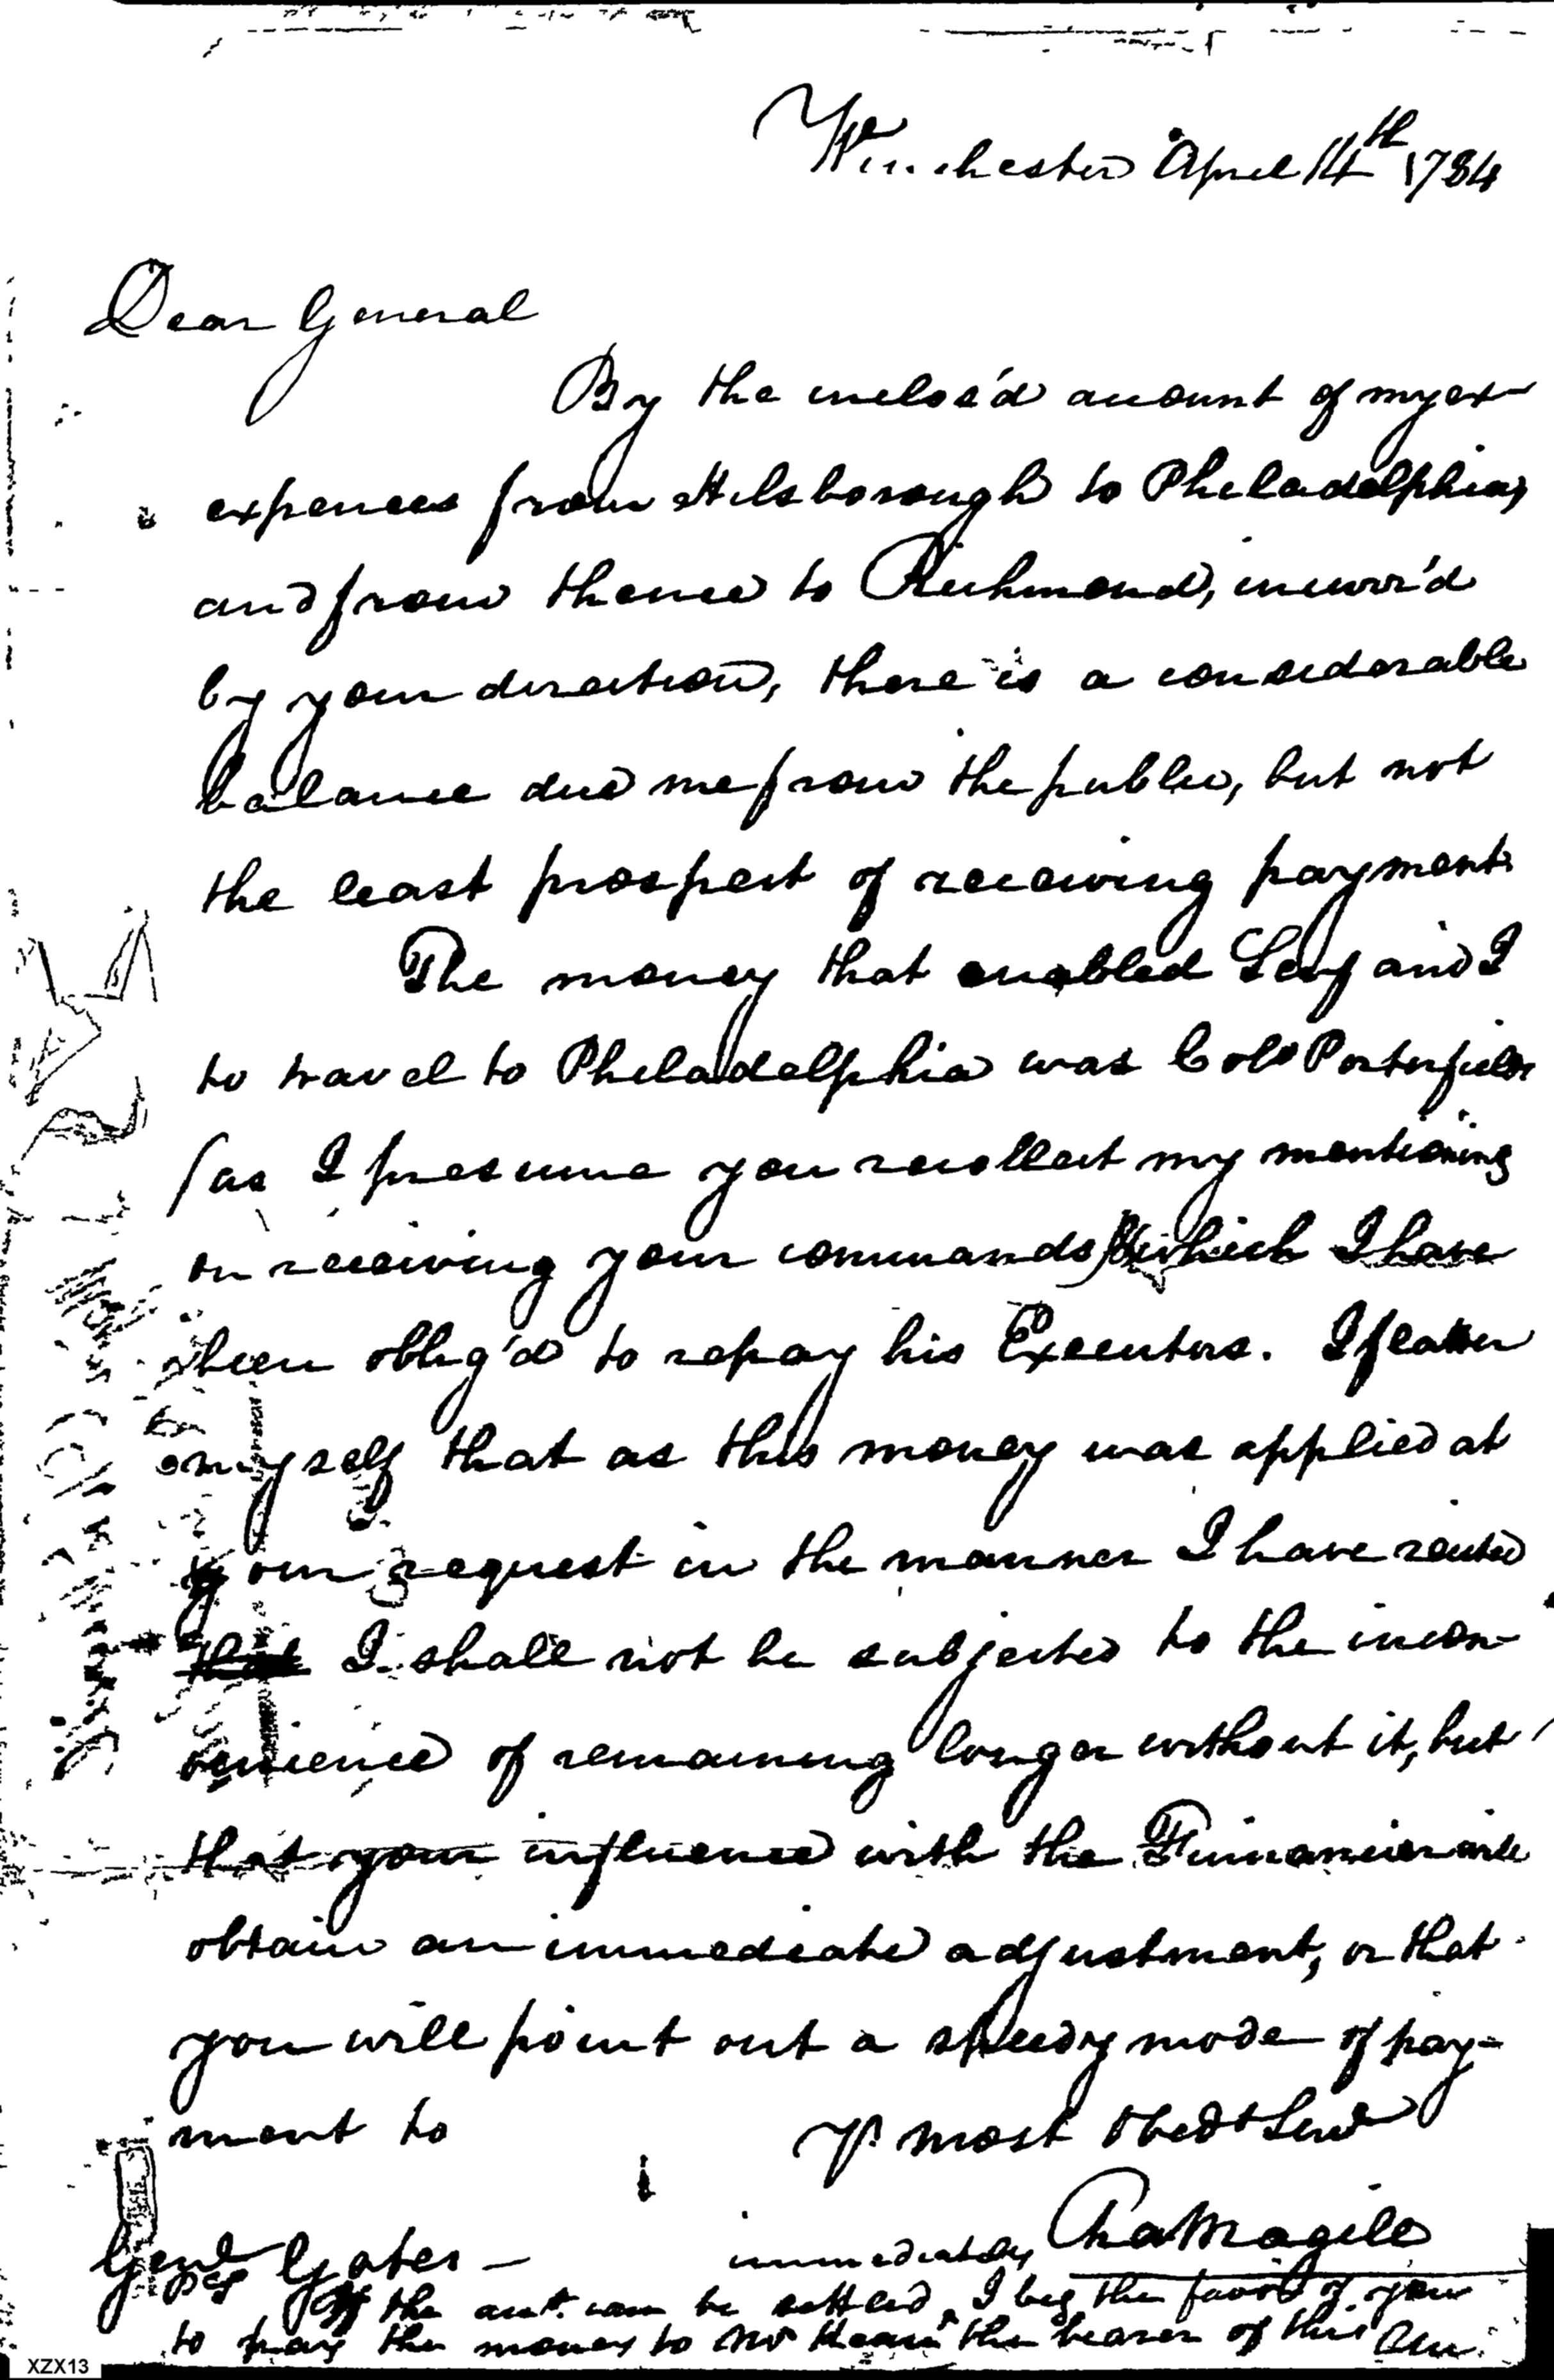 Winchester April 14th 1784
Dear General
By the inclos'd account of my ex-
expences from Hilsborough to Philadelphia,
and from thence to Richmond, incurr'd
by your direction, there is a considerable
balance due me from the public, but not
the least prospect of receiving payment.
The money that enabled Levy and I
to travel to Philadelphia was Colo Porterfields
(as I presume you recollect my mentioning
on receiving your commands) which I have
been oblig'd to repay his Executors. I flatter
myself that as this money was applied at
your request in the manner I have recited
I shall not be subjected to the incon-
venience of remaining longer without it, but
that your influence with the Financier will
obtain an immediate adjustment, or that
you will point out a speedy mode of pay-
ment to
Yr most Obedt Servt
Cha Magill
Genl Gates -
immediately
If the acct. can be settled, I beg the favor of you
to pay the money to Mr the bearer of this CM.
XZX13